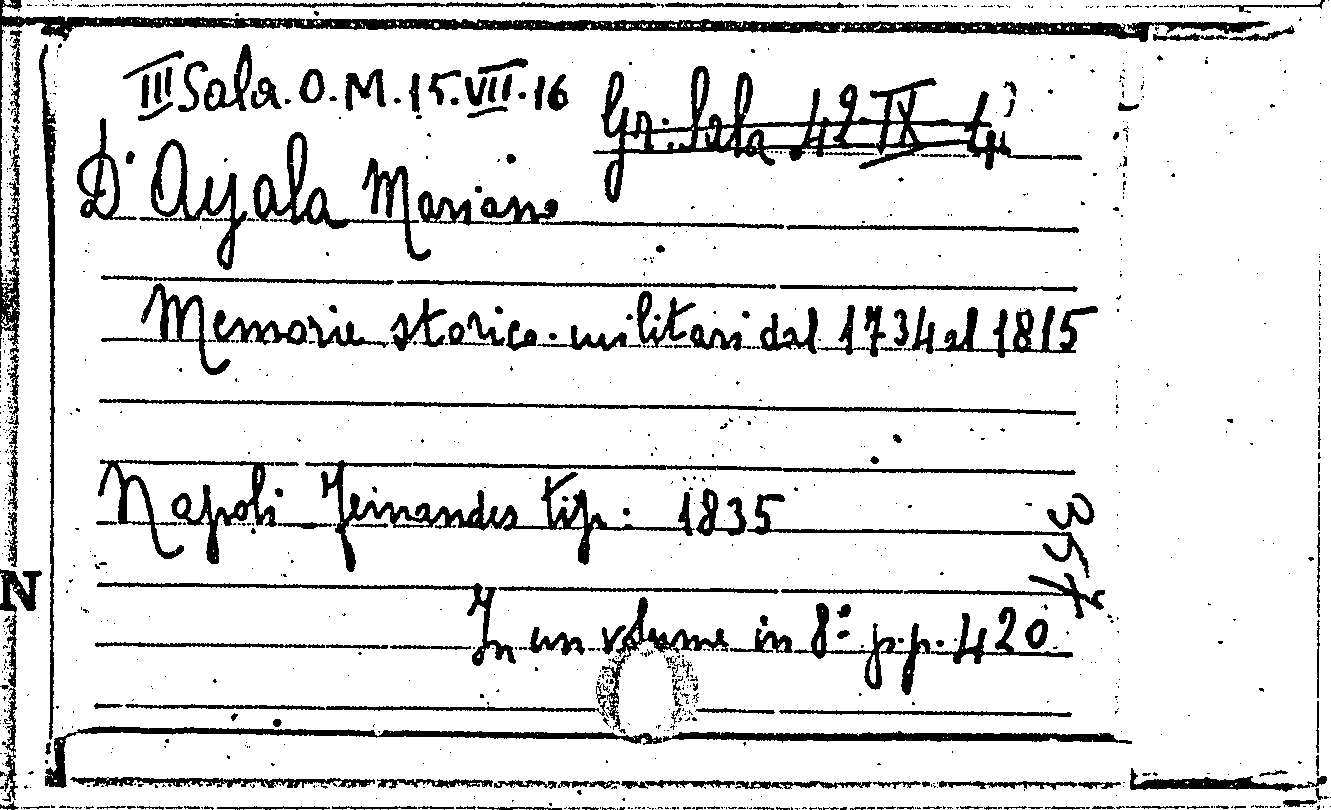 III Sala. O. M. 15. VII. 16
Gr: Sala 42 IX 4
D'Ayala Mariano
Memorie storico-militari dal 1734 al 1815
Napoli Fernandes tip: 1835
N
In un volume in 8º p.p. 420